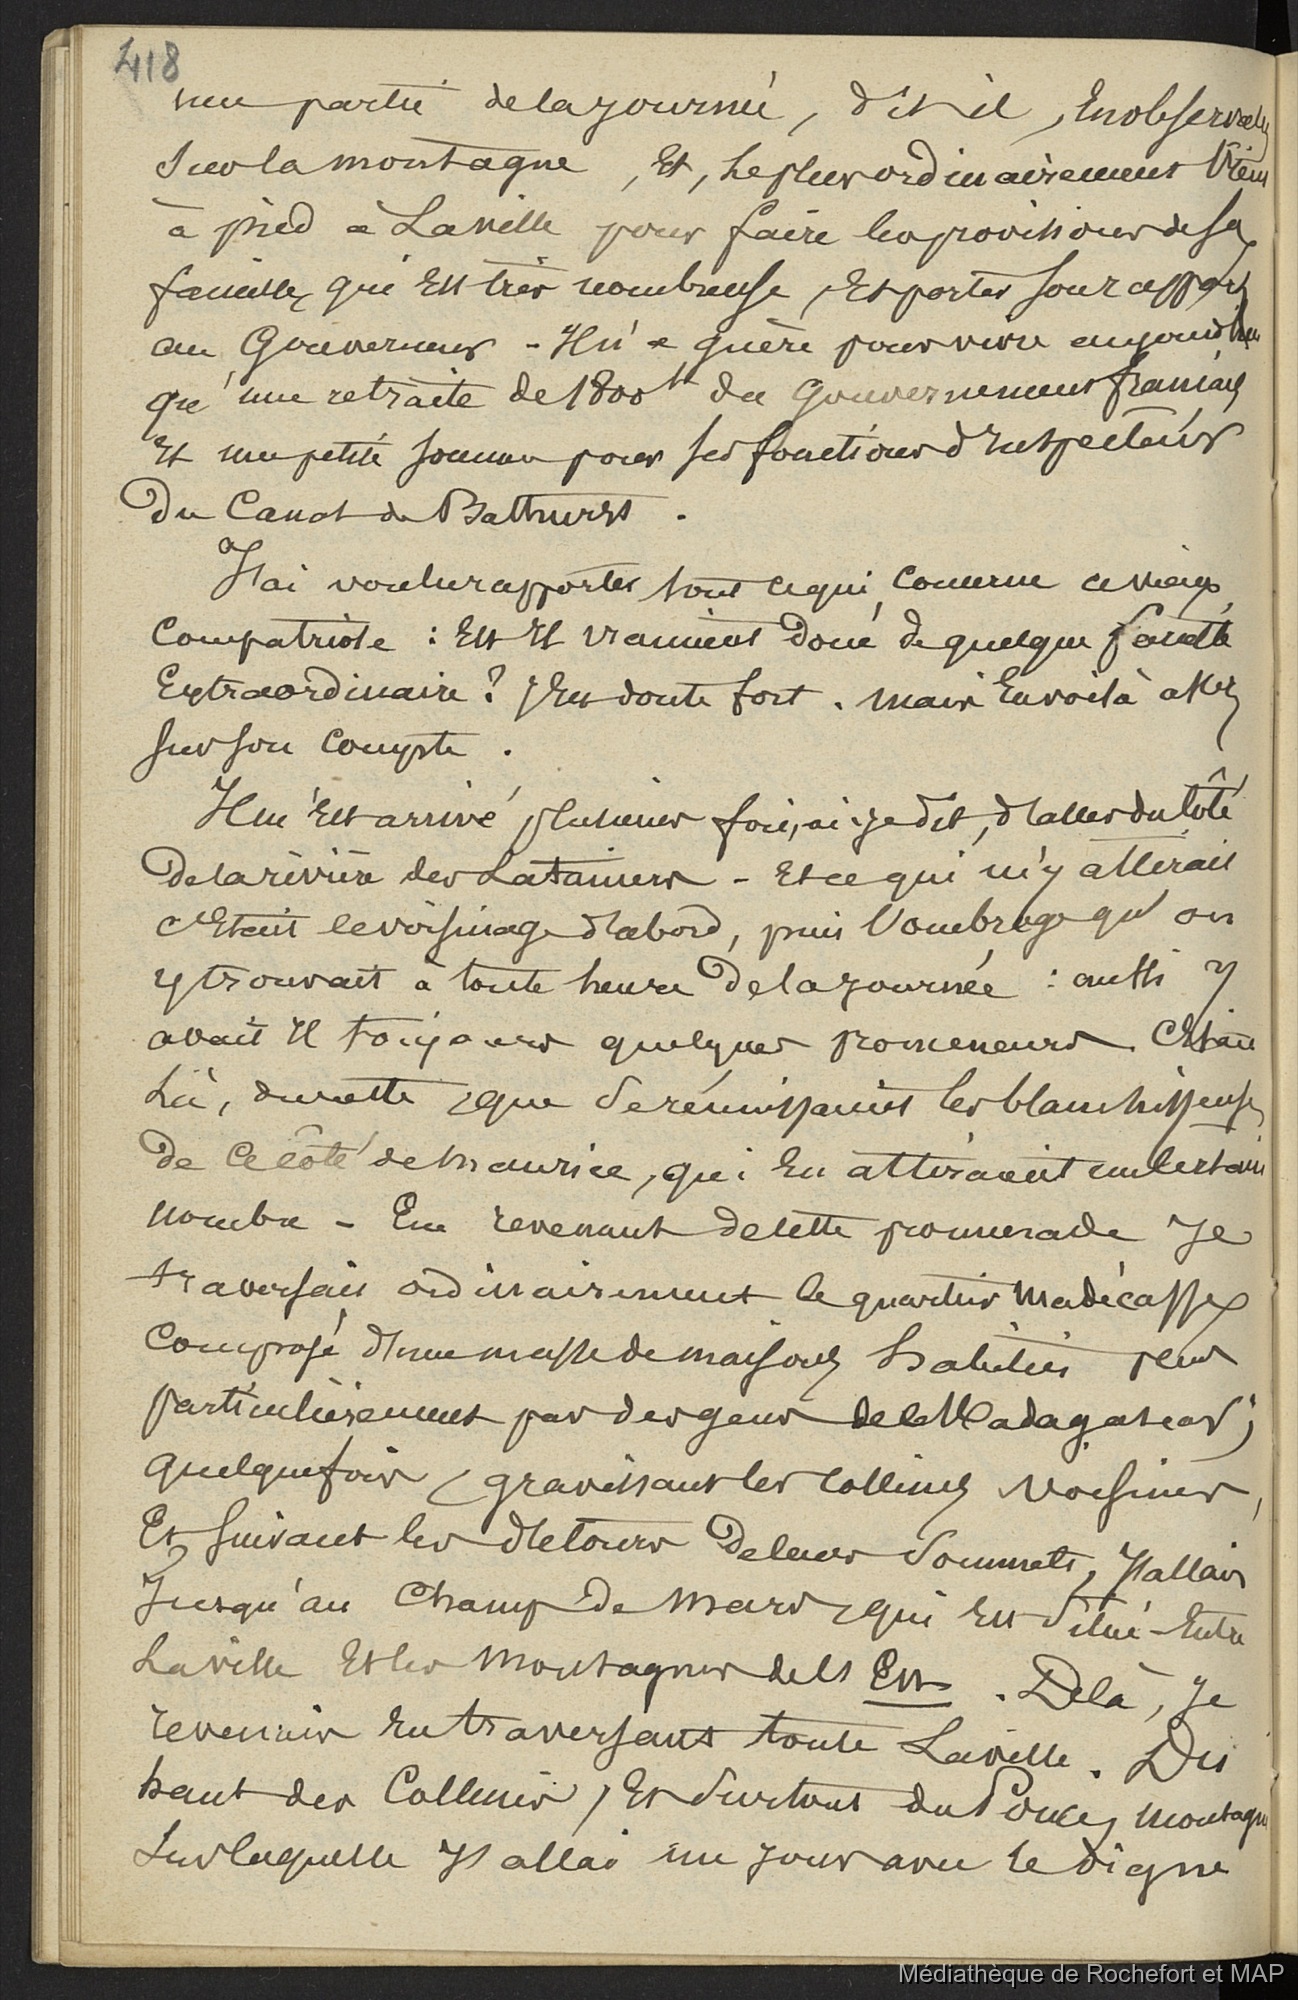 418
une partie de la journée, dit il, en observat
sur la montagne, et, le plus ordinairement vient
à pied à la ville pour faire les provisions de sa
famille, qui est très nombreuse, et porter son rapport
au Gouverneur - Il n'a guère pour vivre aujourd'hui
qu'une retraite de 1800 du Gouvernement français
et une petite somme pour ses fonctions d'inspecteur
du Canal de Bathurst.
J'ai voulu rapporter tout ce qui concerne ce vieux
compatriote : est il vraiment doué de quelque faculté
extraordinaire ? J'en doute fort. mais en voilà assez
sur son compte.
Il m'est arrivé plusieurs fois, ai-je dit, d'aller du côté
de la rivière des Lataniers - et ce qui m'y attirait
c'était le voisinage d'abord, puis l'ombrage qu'on
y trouvait à toute heure de la journée : aussi y
avait il toujours quelques promeneurs. C'était
là, du reste, que se réunissaient les blanchisseuses
de ce côté de Maurice, qui en attiraient un certain
nombre - En revenant de cette promenade je
traversais ordinairement le quartier Madécasse
composé d'une masse de maisons habitées plus
particulièrement par des gens de Madagascar ;
quelquefois, gravissant les collines voisines,
et suivant les détours de leurs sommets, j'allais
jusqu'au Champ de Mars, qui est situé entre
la ville et les montagnes de l'Est. De là, je
revenais en traversant toute la ville. Du
haut des collines, et surtout du Pouce, montagne
sur laquelle j'allai un jour avec le digne
Médiathèque de Rochefort et MAP